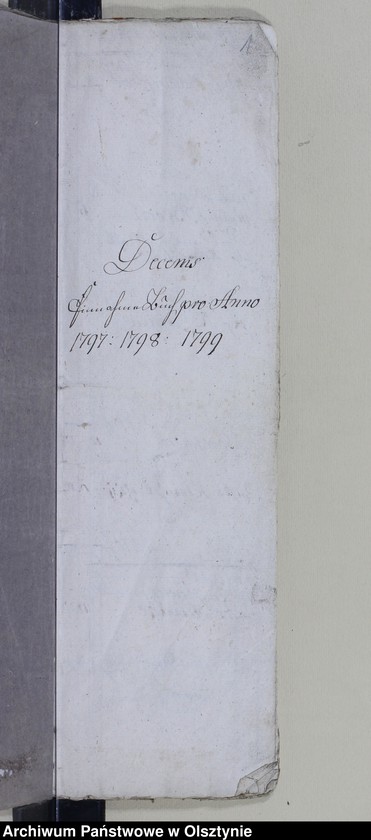 1
Decems
Einnahme Buch pro Anno
1797: 1798: 1799
Archiwum Państwowe w Olsztynie